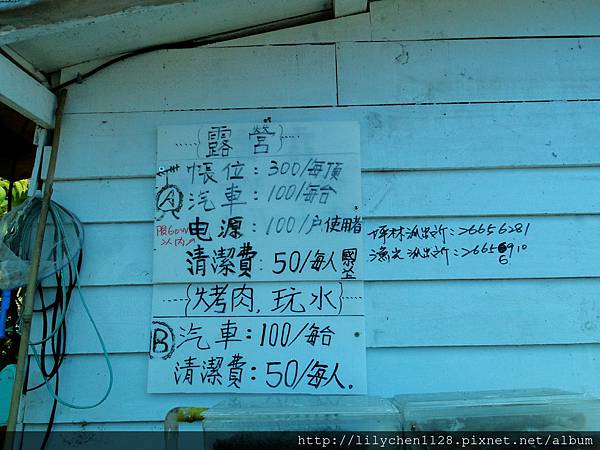 {露營}
帳位：300/每頂
Ⓐ汽車：100/每台
电源：100/户使用者
限60W以內
清潔費：50/每人
{烤肉，玩水}
Ⓑ汽車：100/每台
清潔費：50/每人.
坪林派出所：26656281
派出所：
http://lilychen1128.pixnet.net/album